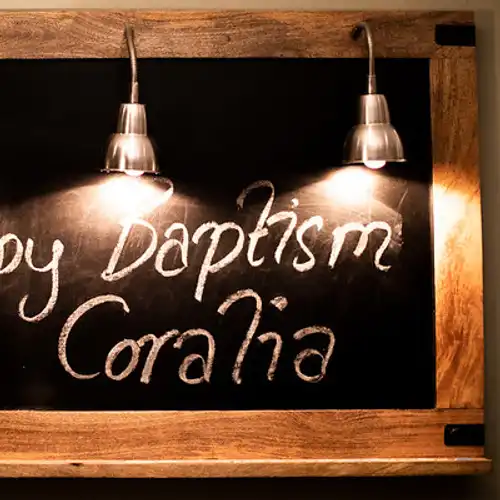 py Baptism
Coralia